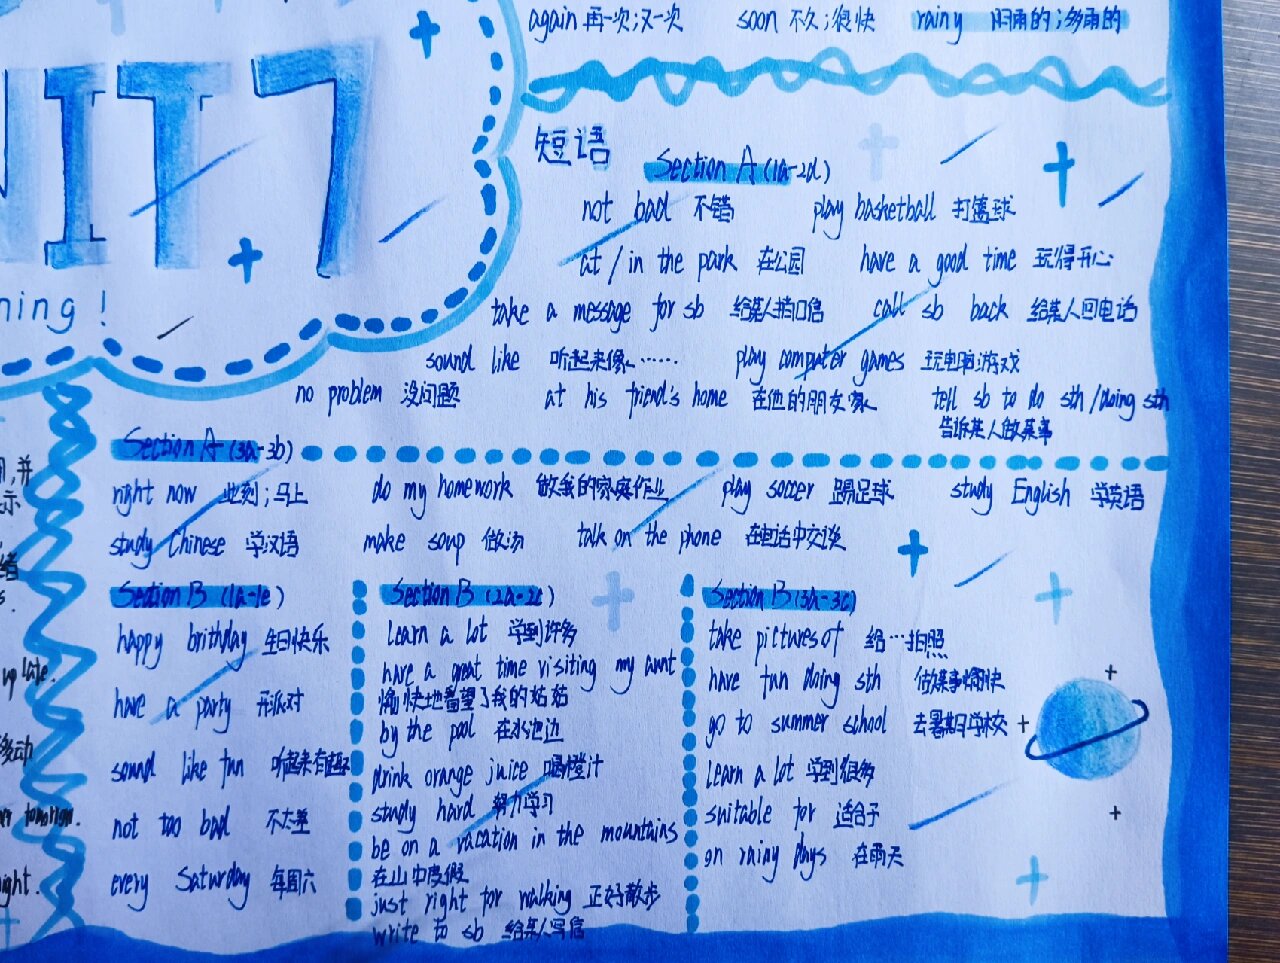 again 再一次;又一次 soon 不久;很快 rainy 阴雨的;多雨的
NIT 7
ning!
短语
Section A (1a-2d)
not bad 不错 play basketball 打篮球
at / in the park 在公园 have a good time 玩得开心
take a message for sb 给某人捎口信 call sb back 给某人回电话
sound like 听起来像…… play computer games 玩电脑游戏
no problem 没问题 at his friend's home 在他的朋友家 tell sb to do sth /doing sth
告诉某人做某事
Section A (3a-3b)
right now 此刻;马上 do my homework 做我的家庭作业 play soccer 踢足球 study English 学英语
study Chinese 学汉语 make soup 做汤 talk on the phone 在电话中交谈
Section B (1a-1e)
happy brithday 生日快乐
have a party 开派对
sound like fun 听起来有趣
not too bad 不太差
every Saturday 每周六
Section B (2a-2c)
learn a lot 学到许多
have a great time visiting my aunt
愉快地看望了我的姑姑
by the pool 在水池边
drink orange juice 喝橙汁
study hard 努力学习
be on a vacation in the mountains
在山中度假
just right for walking 正好散步
write to sb 给某人写信
Section B (3a-3c)
take pictures of 给…拍照
have fun doing sth 做某事愉快
go to summer school 去暑期学校
learn a lot 学到很多
suitable for 适合于
on rainy days 在雨天
,并
示
up late.
移动
tomorrow.
ight.